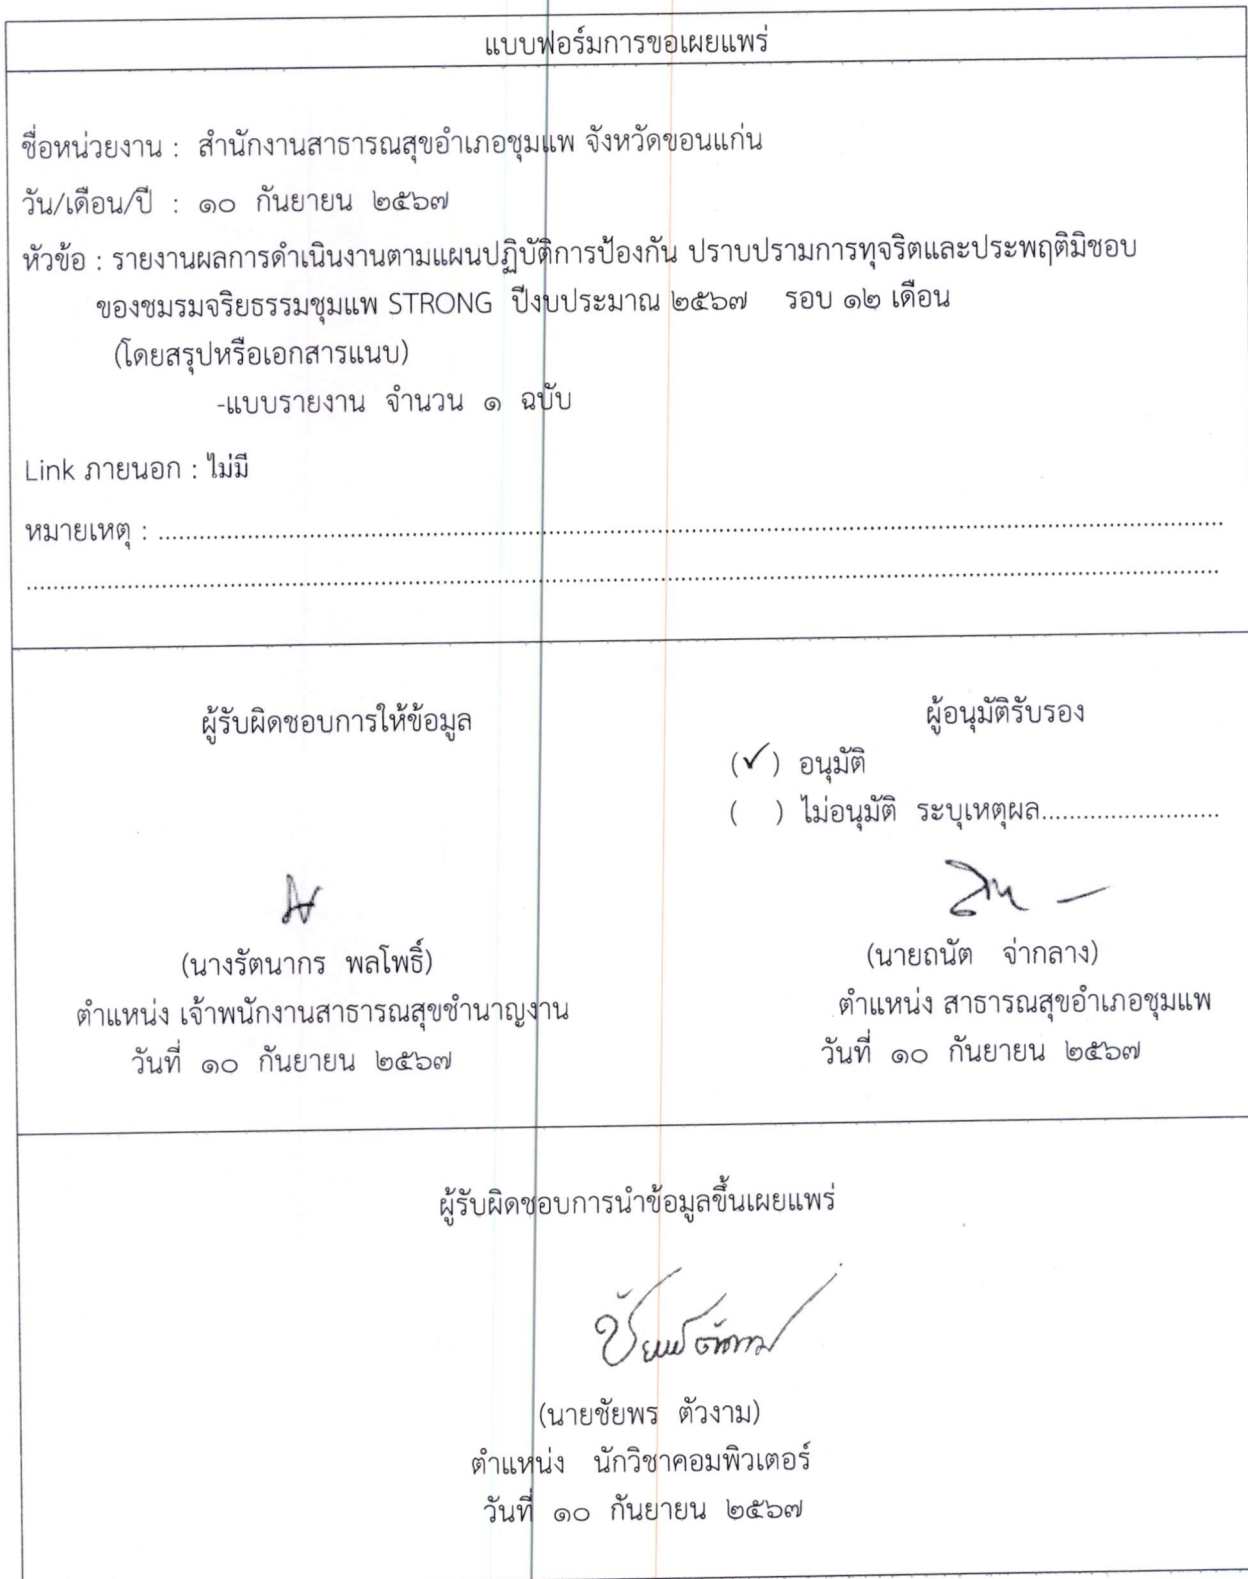 แบบฟอร์มการขอเผยแพร่
ชื่อหน่วยงาน : สำนักงานสาธารณสุขอำเภอชุมแพ จังหวัดขอนแก่น
วัน/เดือน/ปี : ๑๐ กันยายน ๒๕๖๗
หัวข้อ : รายงานผลการดำเนินงานตามแผนปฏิบัติการป้องกัน ปราบปรามการทุจริตและประพฤติมิชอบ
ของชมรมจริยธรรมชุมแพ STRONG ปีงบประมาณ ๒๕๖๗ รอบ ๑๒ เดือน
(โดยสรุปหรือเอกสารแนบ)
-แบบรายงาน จำนวน ๑ ฉบับ
Link ภายนอก : ไม่มี
หมายเหตุ : ........................................................................
........................................................................
ผู้รับผิดชอบการให้ข้อมูล
(นางรัตนากร พลโพธิ์)
ตำแหน่ง เจ้าพนักงานสาธารณสุขชำนาญงาน
วันที่ ๑๐ กันยายน ๒๕๖๗
ผู้อนุมัติรับรอง
(✓) อนุมัติ
( ) ไม่อนุมัติ ระบุเหตุผล..........................
(นายถนัต จ่ากลาง)
ตำแหน่ง สาธารณสุขอำเภอชุมแพ
วันที่ ๑๐ กันยายน ๒๕๖๗
ผู้รับผิดชอบการนำข้อมูลขึ้นเผยแพร่
(นายชัยพร ตัวงาม)
ตำแหน่ง นักวิชาคอมพิวเตอร์
วันที่ ๑๐ กันยายน ๒๕๖๗